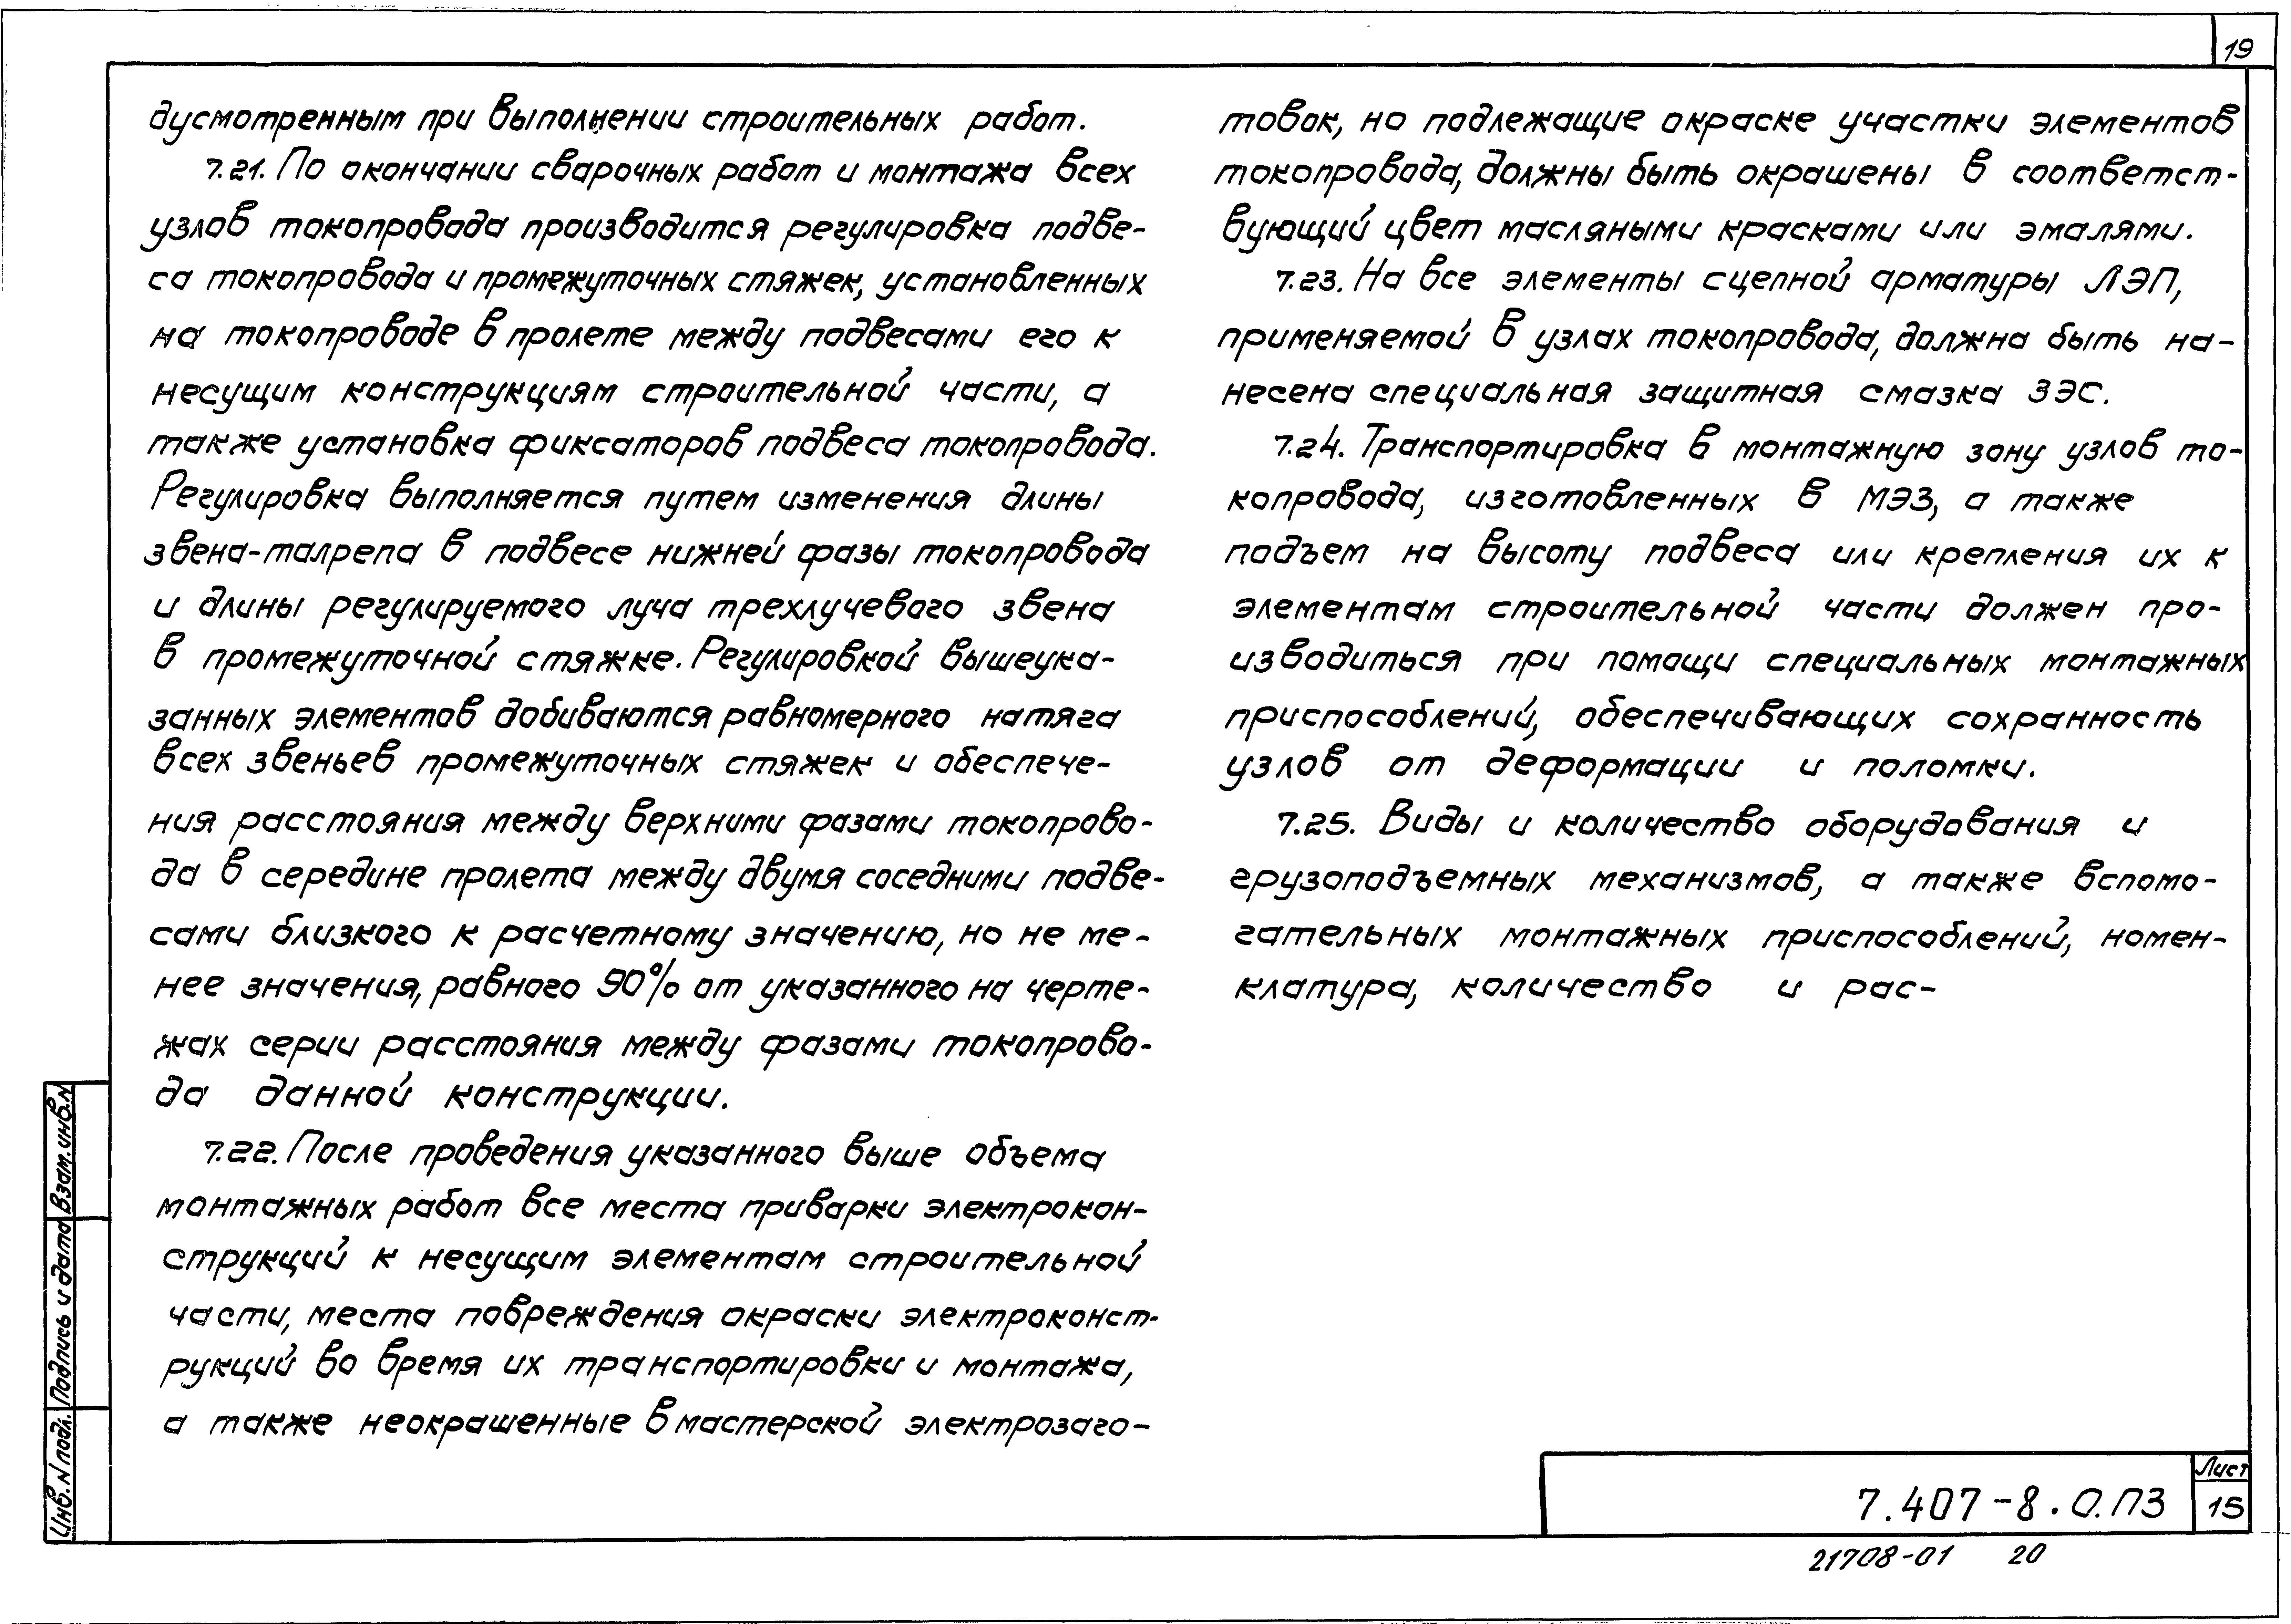 19
дусмотренным при выполнении строительных работ.
7.21. По окончании сварочных работ и монтажа всех
узлов токопровода производится регулировка подве-
са токопровода и промежуточных стяжек, установленных
на токопроводе в пролете между подвесами его к
несущим конструкциям строительной части, а
также установка фиксаторов подвеса токопровода.
Регулировка выполняется путем изменения длины
звена-талрепа в подвесе нижней фазы токопровода
и длины регулируемого луча трехлучевого звена
в промежуточной стяжке. Регулировкой вышеука-
занных элементов добиваются равномерного натяга
всех звеньев промежуточных стяжек и обеспече-
ния расстояния между верхними фазами токопрово-
да в середине пролета между двумя соседними подве-
сами близкого к расчетному значению, но не ме-
нее значения, равного 90% от указанного на черте-
жах серии расстояния между фазами токопрово-
да данной конструкции.
7.22. После проведения указанного выше объема
монтажных работ все места приварки электрокон-
струкций к несущим элементам строительной
части, места повреждения окраски электроконст-
рукций во время их транспортировки и монтажа,
а также неокрашенные в мастерской электрозаго-
товок, но подлежащие окраске участки элементов
токопровода, должны быть окрашены в соответст-
вующий цвет масляными красками или эмалями.
7.23. На все элементы сцепной арматуры ЛЭП,
применяемой в узлах токопровода, должна быть на-
несена специальная защитная смазка ЗЭС.
7.24. Транспортировка в монтажную зону узлов то-
копровода, изготовленных в МЭЗ, а также
подъем на высоту подвеса или крепления их к
элементам строительной части должен про-
изводиться при помощи специальных монтажных
приспособлений, обеспечивающих сохранность
узлов от деформации и поломки.
7.25. Виды и количество оборудования и
грузоподъемных механизмов, а также вспомо-
гательных монтажных приспособлений, номен-
клатура, количество и рас-
Инв. N подл. Подпись и дата Взам. инв. N
7.407-8.0.ПЗ
Лист
15
21708-01 20